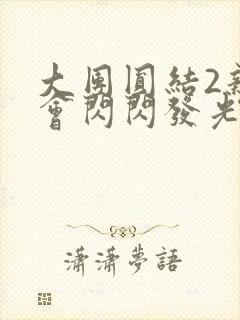 大團圓結2新
會閃閃發光
瀟瀟夢語